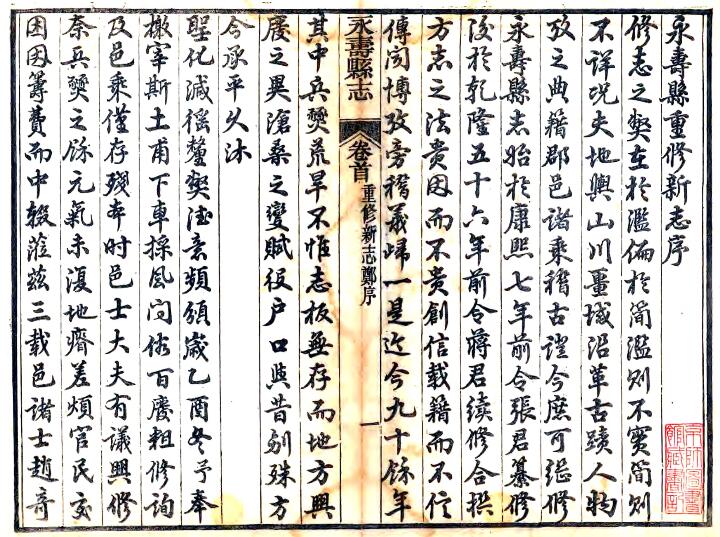 永壽縣重修新志序
修志之弊在於濫偏於簡濫則不實簡則
不詳況夫地輿山川畺域沿革古蹟人物
攷之典籍郡邑諸乘稽古證今庶可繼修
永壽縣志始於康熙七年前令張君纂修
後於乾隆五十六年前令蔣君續修合撰
方志之法貴因而不貴創信載籍而不信
傳聞博攷旁稽義歸一是迄今九十餘年
永壽縣志
卷首
重修新志鄭序
一
其中兵燹荒旱不惟志板無存而地方興
廢之異滄桑之變賦役户口與昔割殊方
今承平久沐
聖化減徭釐弊德意頻頒歲乙酉冬予奉
檄宰斯土甫下車採風問俗百廢粗修詢
及邑乘僅存殘本時邑士大夫有議興修
奈兵燹之餘元氣未復地瘠差煩官民交
困因籌費而中輟蒞茲三載邑諸士趙奇